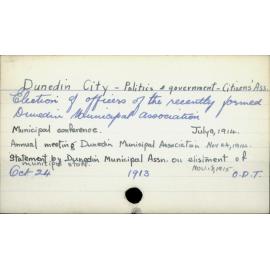 Dunedin City - Politics & government - Citizens' Ass.
Election of officers of the recently formed
Dunedin Municipal Association
Municipal conference. July 9, 1914.
Annual meeting Dunedin Municipal Association Nov 24, 1914.
Statement by Dunedin Municipal Assn. on elistment of
municipal staff. Nov. 1915
Oct 24 1913 O.D.T.